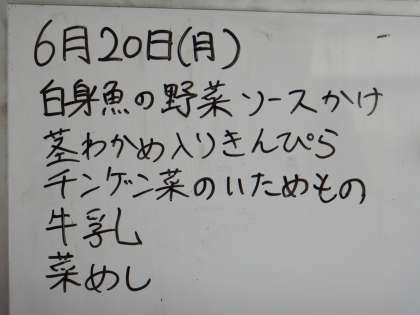 6月20日(月)
白身魚の野菜ソースかけ
茎わかめ入りきんぴら
チンゲン菜のいためもの
牛乳
菜めし